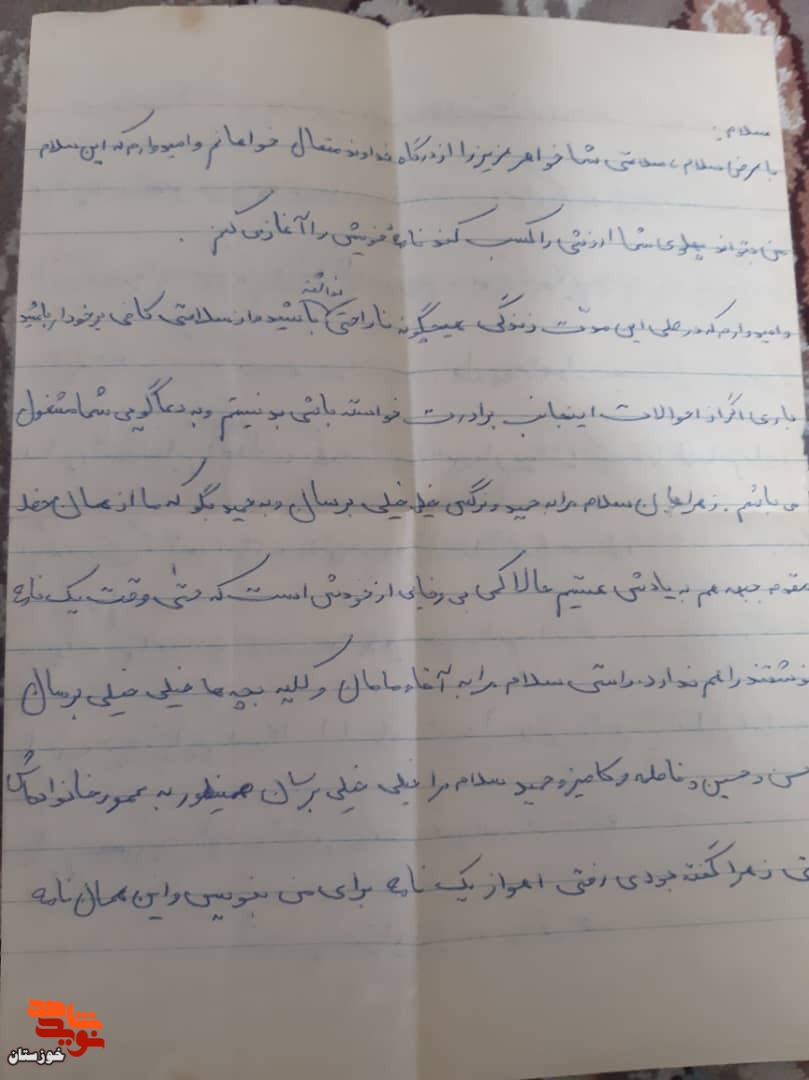 سلام:
با عرض سلام، سلامتی شما خواهر عزیز را از درگاه خداوند متعال خواهانم و امیدوارم که این سلام
من بتواند پهلوی شما ارزشی را کسب کند نامه خویش را آغاز می کنم.
و امیدوارم که در طی این مدّت زندگی هیچگونه ناراحتی نداشته باشید و از سلامتی کافی برخودار باشید
باری اگر از احوالات اینجانب برادرت خواسته باشی بد نیستم و به دعاگویی شما مشغول
می باشم. زهرا جان سلام مرا به حمید و نرگس خیلی خیلی برسان و به حمید بگو که ما از همان خط
مقدم جبهه هم به یادش هستیم حالا کمی بی وفایی از خودش است که حتیٰ وقت یک نامه
نوشتند را هم ندارد. راستی سلام مرا به آقا و مامان و کلیه بچه ها خیلی خیلی برسان
حسن و حسین و فاطمه و کامبیز و حمید سلام مرا خیلی خیلی برسان همینطور به عمو و خانواده اش
زهرا گفته بودی رفتی اهواز یک نامه برای من بنویس و این همان نامه
شاهد
نوید
خوزستان